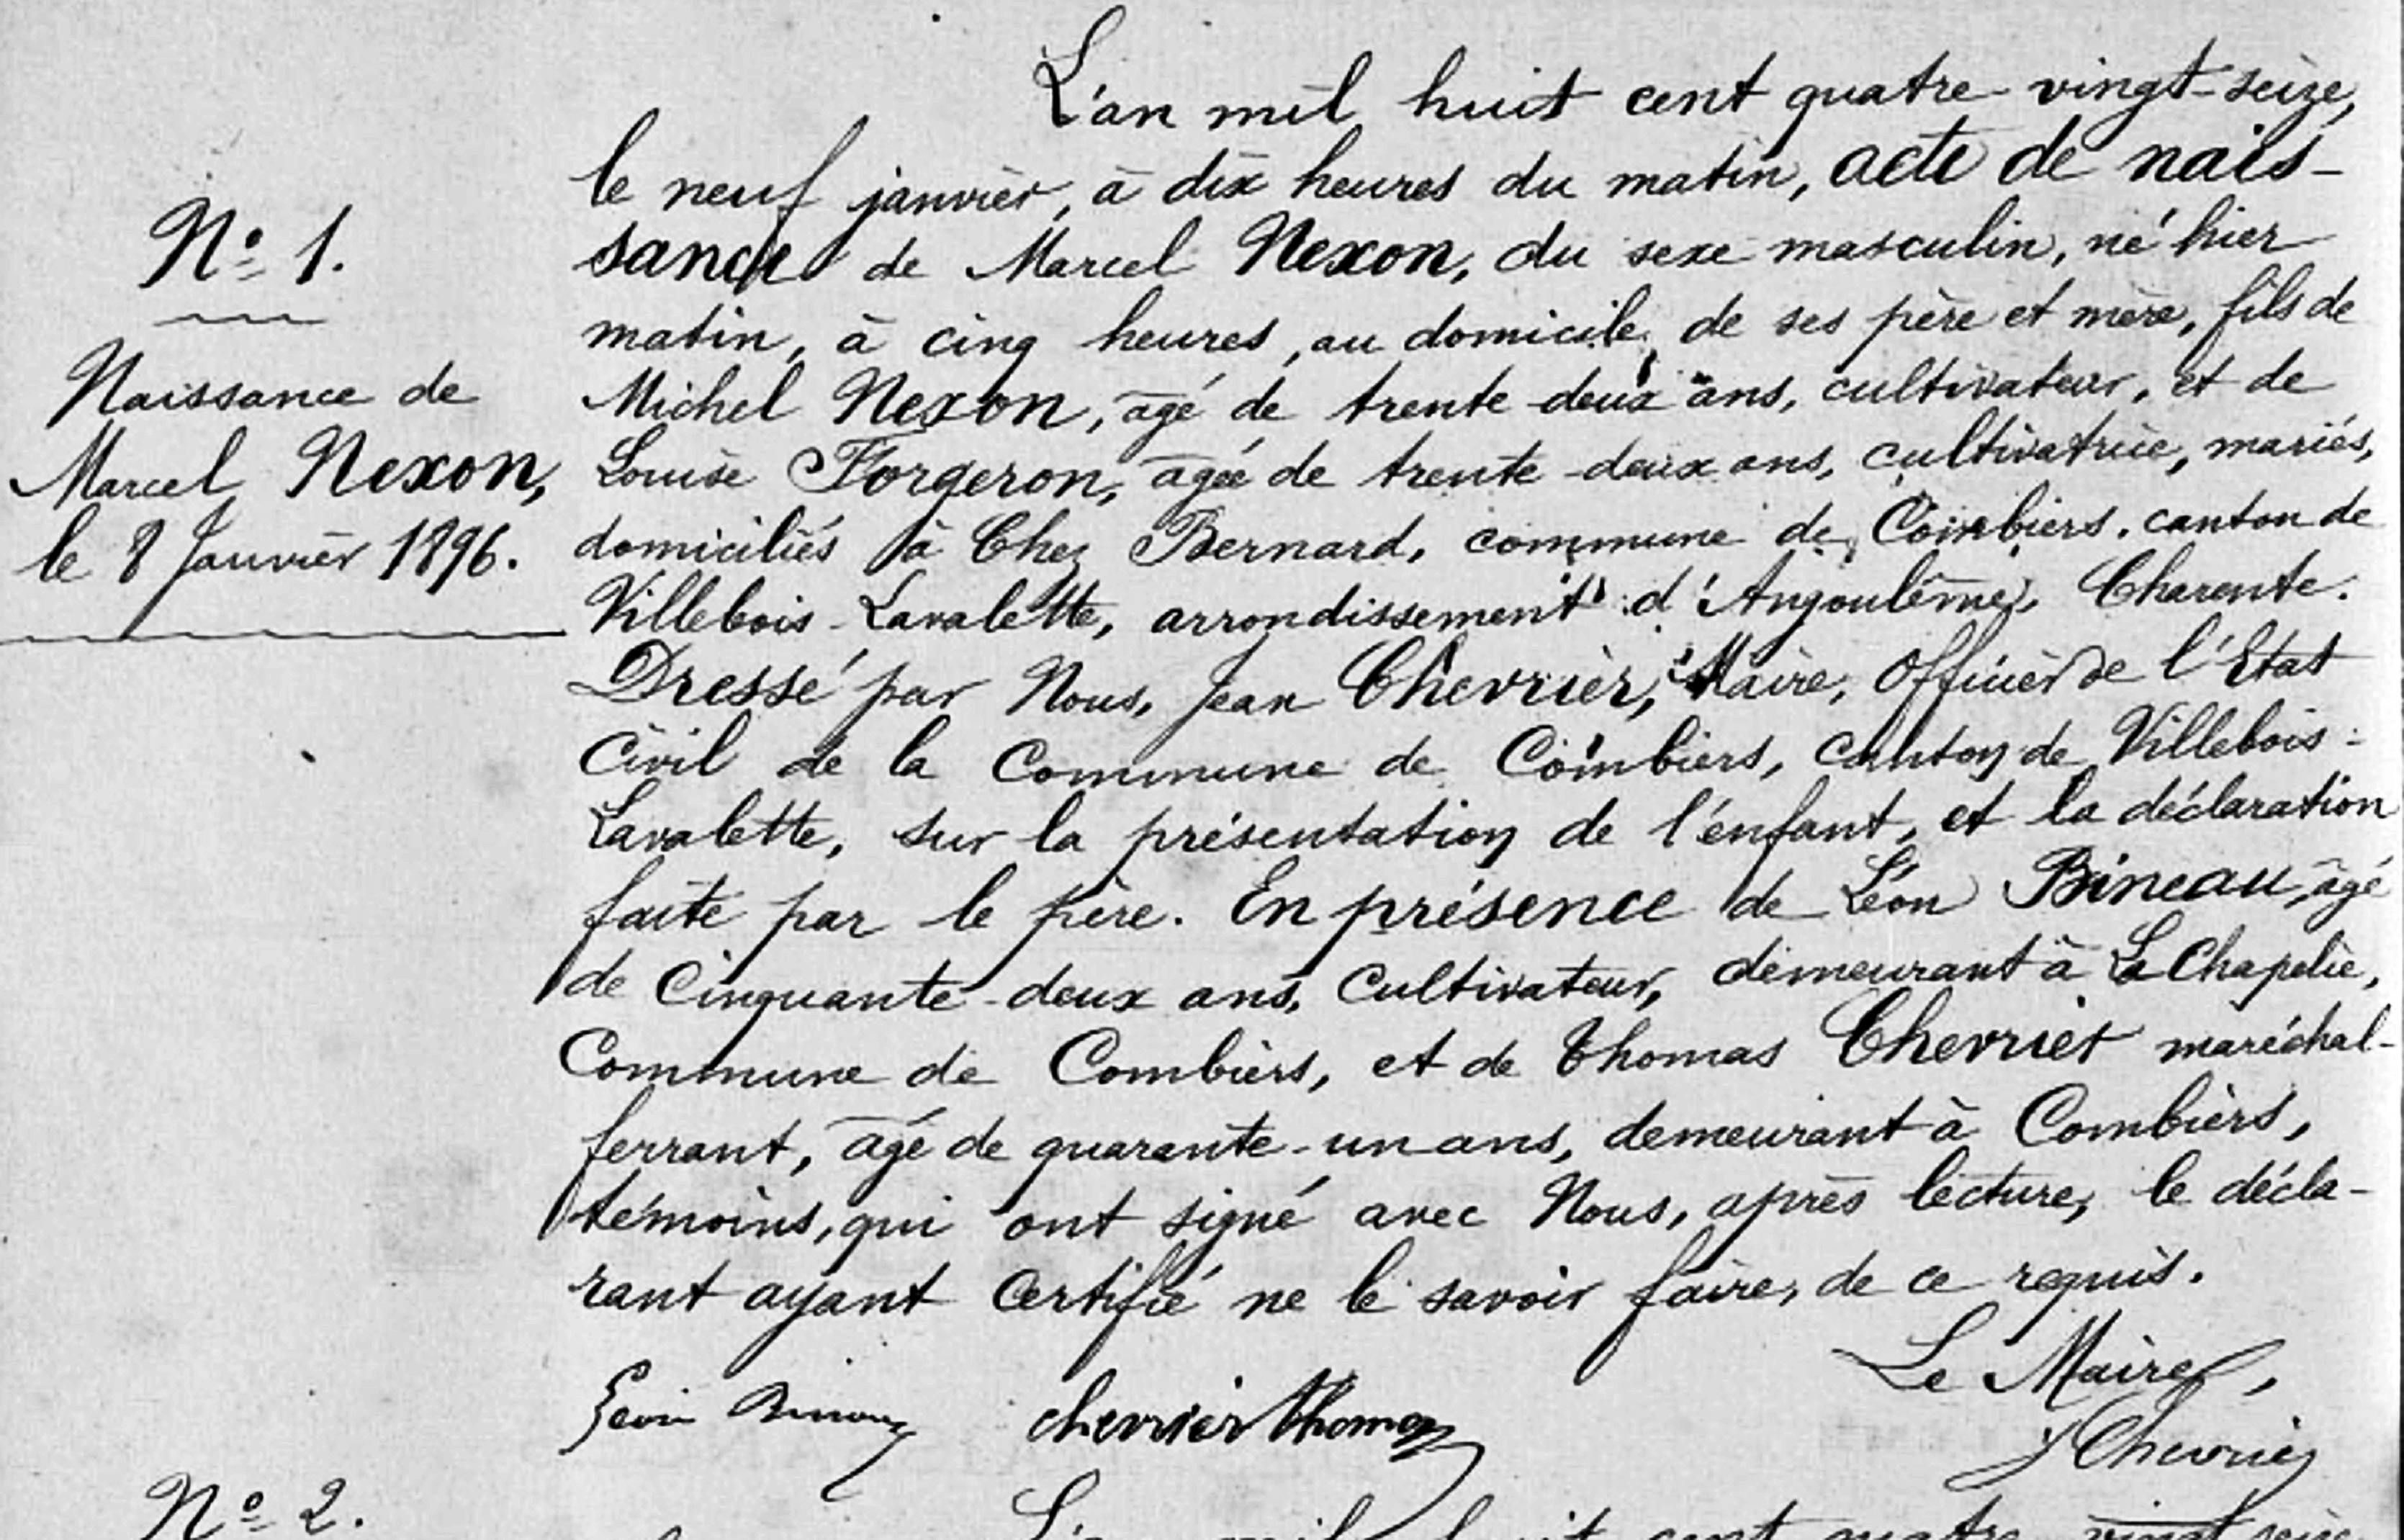 L'an mil huit cent quatre-vingt-seize,
le neuf janvier, à dix heures du matin, acte de nais-
sance de Marcel Nexon, du sexe masculin, né hier
matin, à cinq heures, au domicile de ses père et mère, fils de
Michel Nexon, âgé de trente-deux ans, cultivateur, et de
Louise Forgeron, âgée de trente-deux ans, cultivatrice, mariés,
domiciliés à Chez Bernard, commune de Combiers, canton de
Villebois-Lavalette, arrondissement d'Angoulême, Charente.
Dressé par Nous, Jean Chevrier, Maire, Officier de l'Etat
Civil de la Commune de Combiers, canton de Villebois-
Lavalette, sur la présentation de l'enfant, et la déclaration
faite par le père. En présence de Léon Bineau, âgé
de Cinquante-deux ans, Cultivateur, demeurant à La Chapelie,
Commune de Combiers, et de Thomas Chevrier maréchal-
ferrant, âgé de quarante-un ans, demeurant à Combiers,
témoins, qui ont signé avec Nous, après lecture, le décla-
rant ayant certifié ne le savoir faire, de ce requis.
Le Maire,
Léon Bineau chevrier thomas
J Chevrier
N° 1.
Naissance de
Marcel Nexon,
le 8 Janvier 1896.
N° 2.
L'an mil huit cent quatre vingt seize